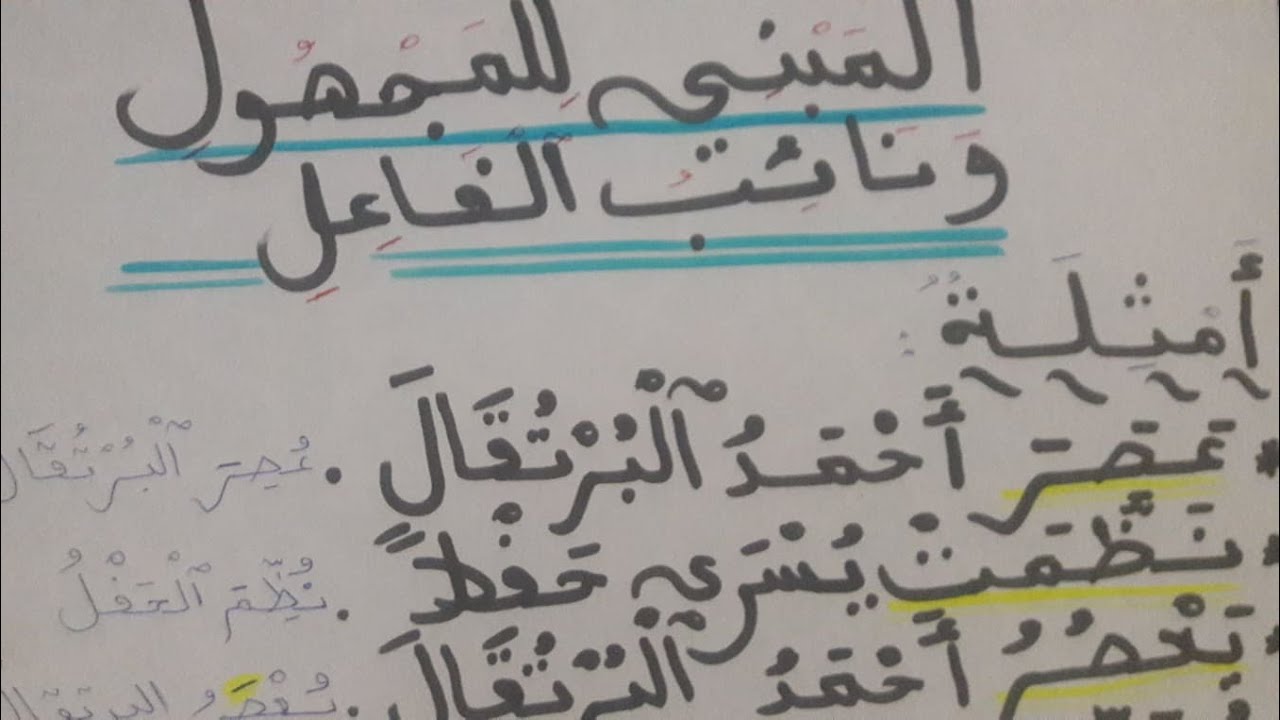 المَبْنِي لِلمَجْهُولِ
وَنَائِبُ الْفَاعِلِ
أَمْثِلَةٌ :
* عَصَرَ أَحْمَدُ الْبُرْتُقَالَ . عُصِرَ الْبُرْتُقَالُ
* نَظَّمَتْ يُسْرَى حَفْلاً . نُظِّمَ الْحَفْلُ
* يَعْصِرُ أَحْمَدُ الْبُرْتُقَالَ . يُعْصَرُ البرتقال